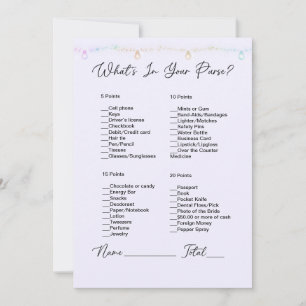 What's In Your Purse?
5 Points
__Cell phone
__Keys
__Driver's license
__Checkbook
__Debit/Credit card
__Hair tie
__Pen/Pencil
__Tissues
__Glasses/Sunglasses
10 Points
__Mints or Gum
__Band-Aids/Bandages
__Lighter/Matches
__Safety Pins
__Water Bottle
__Business Card
__Lipstick/Lipgloss
__Over the Counter
Medicine
15 Points
__Chocolate or candy
__Energy Bar
__Snacks
__Deodorant
__Notepad/Notebook
__Lotion
__Tweezers
__Perfume
__Jewelry
20 Points
__Passport
__Book
__Pocket Knife
__Dental Floss/Pick
__Photo of the Bride
__$50.00 or more of cash
__Foreign Money
__Pepper Spray
Name__________ Total____